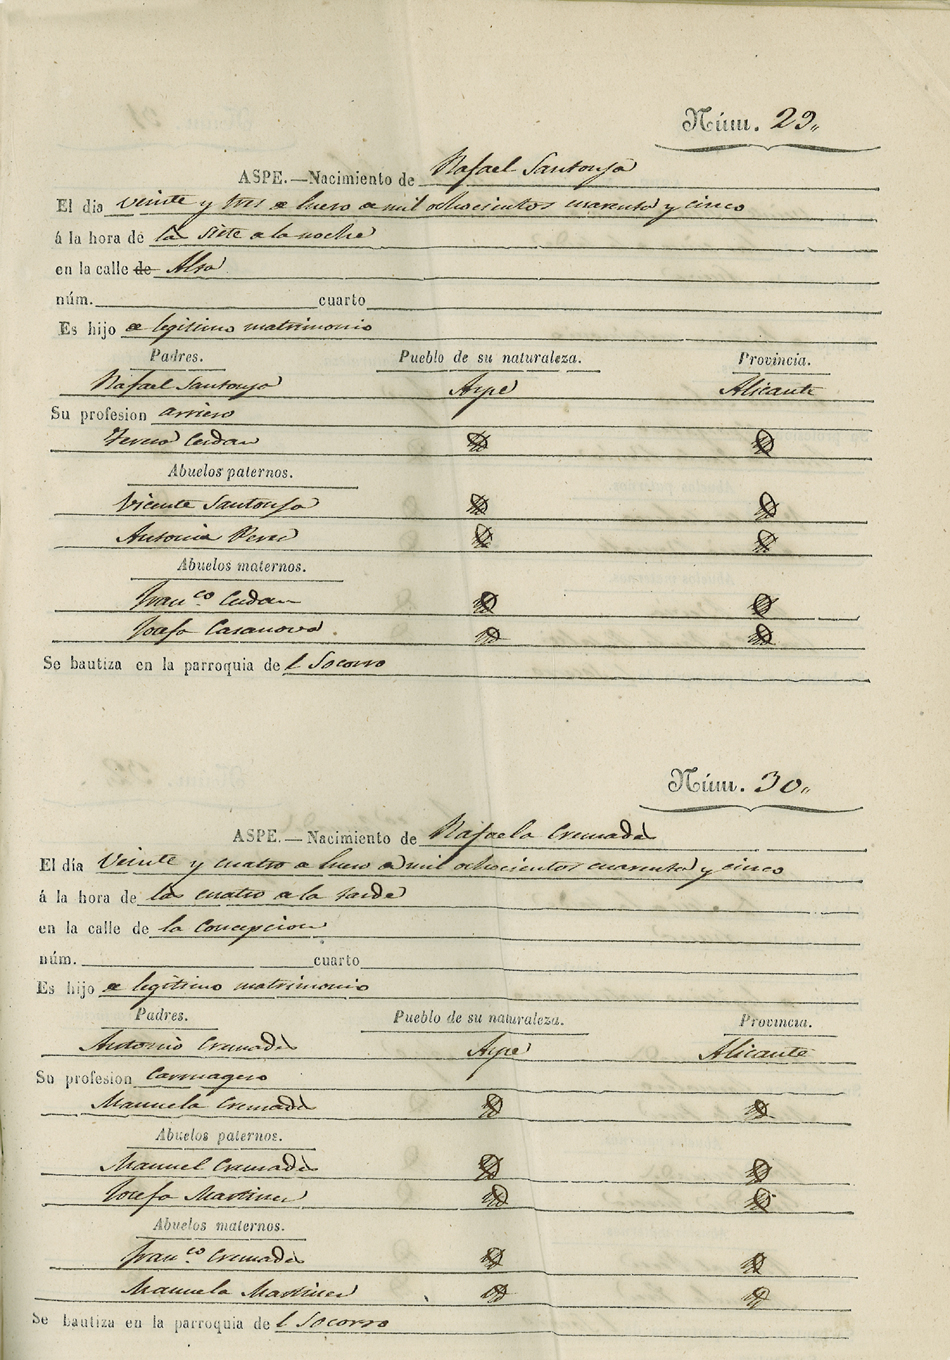 Núm. 29.
ASPE.—Nacimiento de Rafael Santonja
El dia veinte y tres de Enero de mil ochocientos cuarenta y cinco
á la hora de las siete de la noche
en la calle de Alsa
núm. cuarto
Es hijo de legitimo matrimonio
Padres. Pueblo de su naturaleza. Provincia.
Rafael Santonja Aspe Alicante
Su profesion arriero
Teresa Cerdan
Abuelos paternos.
Vicente Santonja
Antonia Perez
Abuelos maternos.
Franco. Cerdan
Josefa Casanova
Se bautiza en la parroquia del Socorro
Núm. 30.
ASPE.—Nacimiento de Rafaela Cremades
El dia veinte y cuatro de Enero de mil ochocientos cuarenta y cinco
á la hora de las cuatro de la tarde
en la calle de la Concepcion
núm. cuarto
Es hijo de legitimo matrimonio
Padres. Pueblo de su naturaleza. Provincia.
Antonio Cremades Aspe Alicante
Su profesion Carruagero
Manuela Cremades
Abuelos paternos.
Manuel Cremades
Josefa Martinez
Abuelos maternos.
Franco. Cremades
Manuela Martinez
Se bautiza en la parroquia del Socorro